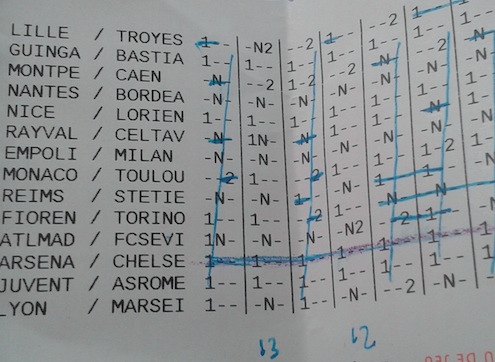 LILLE / TROYES 1-- -N2 --2 1-- --2 1--
GUINGA / BASTIA 1-- 1-- 1-- 1-- -N- -N-
MONTPE / CAEN -N- --2 1-2 -N- 1--
NANTES / BORDEA -N- -N- -N- 1-- 1-- -N-
NICE / LORIEN 1-- 1-- 1-- 1-- -N- 1--
RAYVAL / CELTAV -N- 1N- -N- 1-- 1-- 1--
EMPOLI / MILAN -N- -N- -N- 1-- 1-2
MONACO / TOULOU --2 1-- --2 1-- 1--
REIMS / STETIE -N- -N- -N- -N- -N-
FIOREN / TORINO 1-- 1-- --2 --2 1--
ATLMAD / FCSEVI 1N- -N- -N- -N2 1-- 1--
ARSENA / CHELSE 1-- 1-- 1-- 1-- 1-- 1--
JUVENT / ASROME 1-- 1-- 1-- 1-- 1-- -N-
LYON / MARSEI 1-- -N- 1-- -N- --2 -N-
13 12